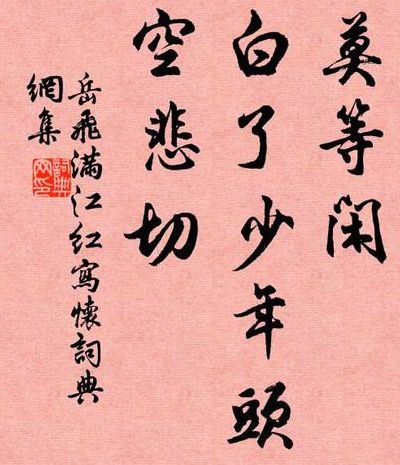 莫等閑
白了少年頭
空悲切
岳飛滿江紅寫懷詞典
網集
詞典
网印